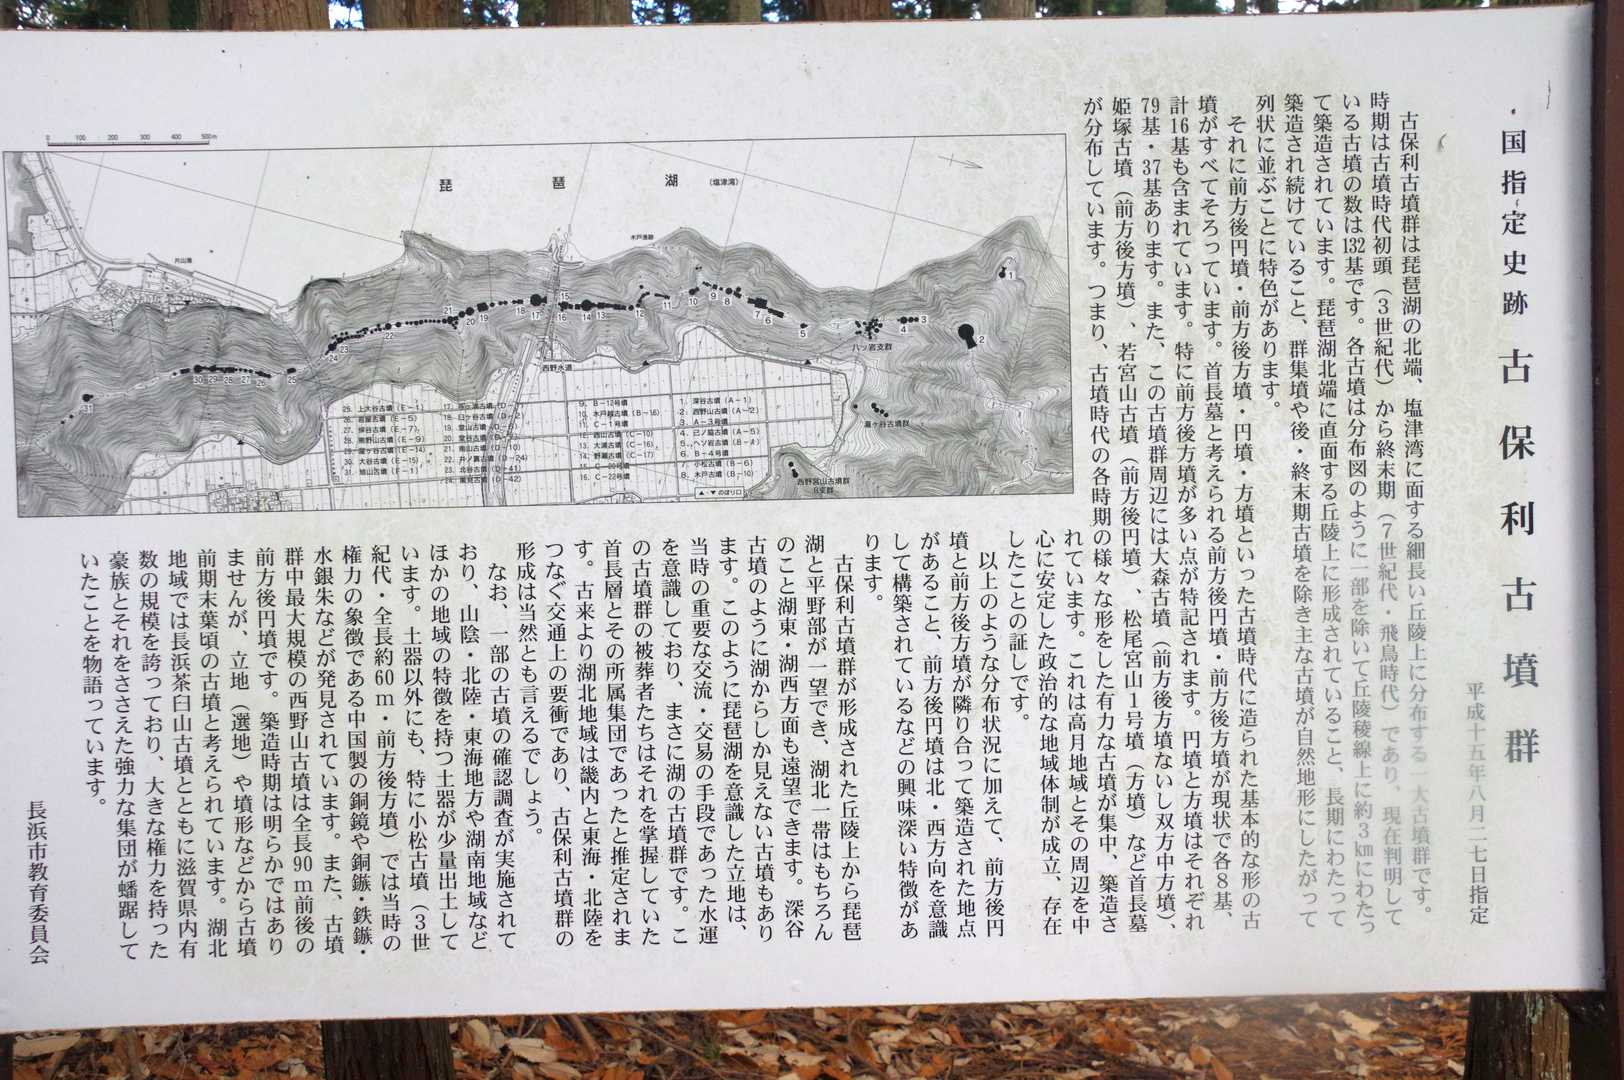 国指定史跡 古保利古墳群
平成十五年八月二七日指定
古保利古墳群は琵琶湖の北端、塩津湾に面する細長い丘陵上に分布する一大古墳群です。
時期は古墳時代初頭（３世紀代）から終末期（７世紀代・飛鳥時代）であり、現在判明して
いる古墳の数は132基です。各古墳は分布図のように一部を除いて丘陵稜線上に約３㎞にわたっ
て築造されています。琵琶湖北端に直面する丘陵上に形成されていること、長期にわたって
築造され続けていること、群集墳や後・終末期古墳を除き主な古墳が自然地形にしたがって
列状に並ぶことに特色があります。
それに前方後円墳・前方後方墳・円墳・方墳といった古墳時代に造られた基本的な形の古
墳がすべてそろっています。首長墓と考えられる前方後円墳・前方後方墳が現状で各８基、
計16基も含まれています。特に前方後方墳が多い点が特記されます。円墳と方墳はそれぞれ
79基・37基あります。また、この古墳群周辺には大森古墳（前方後方墳ないし双方中方墳）、
姫塚古墳（前方後方墳）、若宮山古墳（前方後円墳）、松尾宮山１号墳（方墳）など首長墓
が分布しています。つまり、古墳時代の各時期の様々な形をした有力な古墳が集中、築造さ
れています。これは高月地域とその周辺を中
心に安定した政治的な地域体制が成立、存在
したことの証しです。
以上のような分布状況に加えて、前方後円
墳と前方後方墳が隣り合って築造された地点
があること、前方後円墳は北・西方向を意識
して構築されているなどの興味深い特徴があ
ります。
古保利古墳群が形成された丘陵上から琵琶
湖と平野部が一望でき、湖北一帯はもちろん
のこと湖東・湖西方面も遠望できます。深谷
古墳のように湖からしか見えない古墳もあり
ます。このように琵琶湖を意識した立地は、
当時の重要な交流・交易の手段であった水運
を意識しており、まさに湖の古墳群です。こ
の古墳群の被葬者たちはそれを掌握していた
首長層とその所属集団であったと推定されま
す。古来より湖北地域は畿内と東海・北陸を
つなぐ交通上の要衝であり、古保利古墳群の
形成は当然とも言えるでしょう。
なお、一部の古墳の確認調査が実施されて
おり、山陰・北陸・東海地方や湖南地域など
ほかの地域の特徴を持つ土器が少量出土して
います。土器以外にも、特に小松古墳（３世
紀代・全長約60ｍ・前方後方墳）では当時の
権力の象徴である中国製の銅鏡や銅鏃・鉄鏃・
水銀朱などが発見されています。また、古墳
群中最大規模の西野山古墳は全長90ｍ前後の
前方後円墳です。築造時期は明らかではあり
ませんが、立地（選地）や墳形などから古墳
前期末葉頃の古墳と考えられています。湖北
地域では長浜茶臼山古墳とともに滋賀県内有
数の規模を誇っており、大きな権力を持った
豪族とそれをささえた強力な集団が蟠踞して
いたことを物語っています。
長浜市教育委員会
0 100 200 300 400 500m
琵琶湖（塩津湾）
片山港
木戸港跡
西野水道
八ッ岩支群
湯ヶ谷古墳群
西野宮山古墳群
B支群
1 2 3 4 5 6 7 8 9 10 11 12 13 14 15 16 17 18 19 20 21 22 23 24 25 26 27 28 29 30 31
1. 深谷古墳（A－1）
2. 西野山古墳（A－2）
3. A－3号墳
6. B－4号墳
7. 小松古墳（B－6）
8. 木戸古墳（B－10）
9. B－12号墳
10. 木戸越古墳（B－16）
11. C－1号墳
12. 西山古墳（C－10）
13. 大浦古墳（C－16）
14. 野瀬古墳（C－17）
15. C－20号墳
16. C－22号墳
21. 南山古墳（D－10）
23. 北谷古墳（D－41）
24. 風見古墳（D－42）
25. 上大谷古墳（E－1）
28. 熊野山古墳（E－9）
30. 大谷古墳（E－15）
31. 旭山古墳（F－1）
▲・▼のぼり口